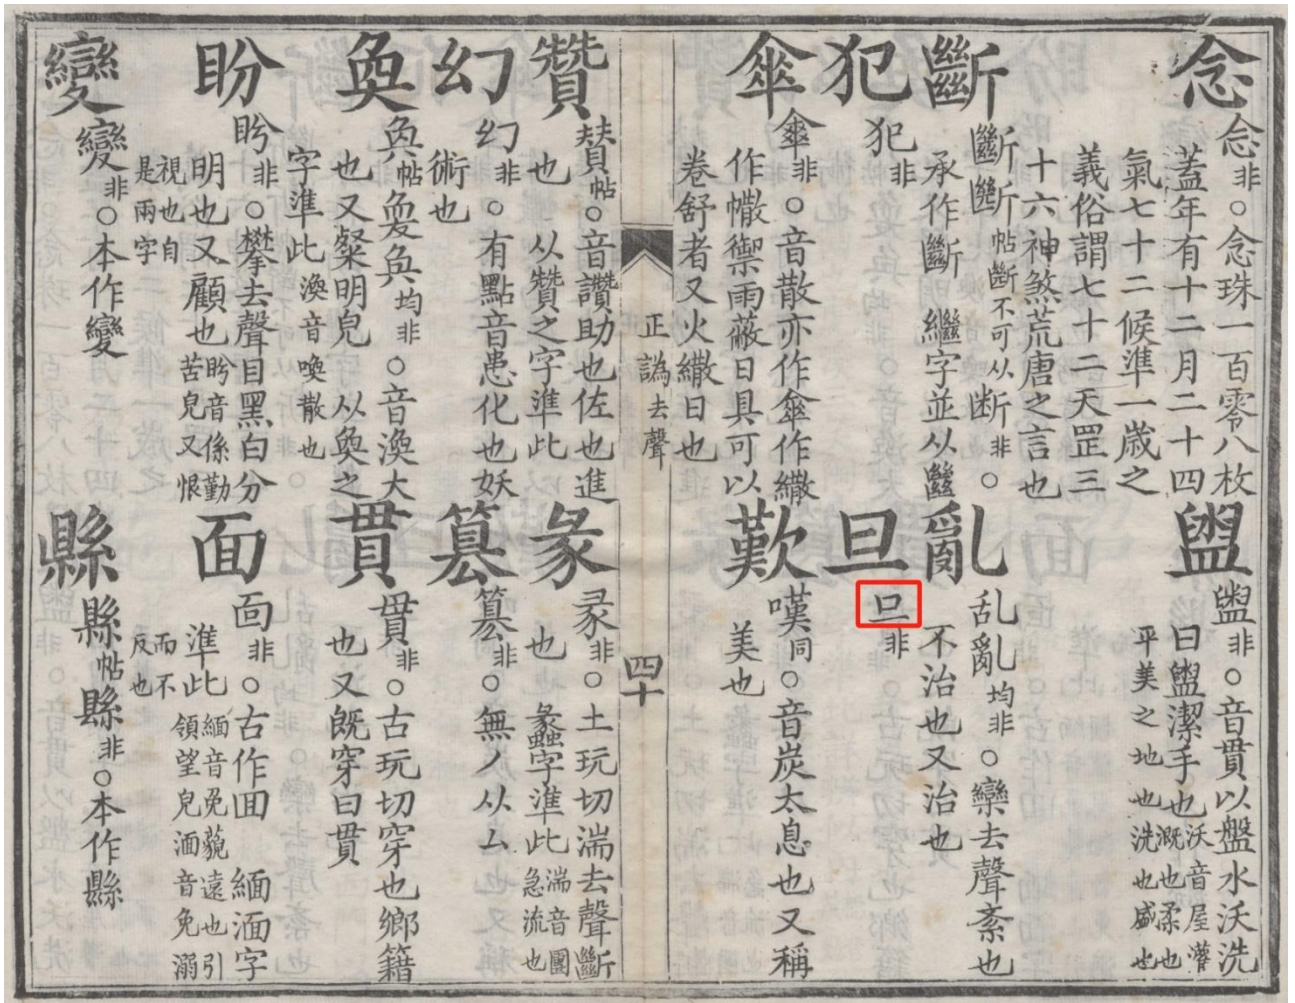 念
念非○念珠一百零八枚
蓋年有十二月二十四
氣七十二候準一歲之
義俗謂七十二天罡三
十六神煞荒唐之言也
斷
斷帖斷不可从断非○
承作斷繼字並从㡭
犯
犯非
傘
傘非○音散亦作傘作繖
作幰禦雨蔽日具可以
卷舒者又火繖日也
盥
盥非○音貫以盤水沃洗
曰盥潔手也沃音屋灌
溉也柔也盛也
平美之地也洗也
亂
乱亂均非○欒去聲紊也
不治也又治也
旦
非
歎
嘆同○音炭太息也又稱
美也
正譌去聲
四十
贊
賛帖○音讚助也佐也進
也 从贊之字準此
幻
幻非○有點音患化也妖
術也
奐
奐帖奐奐均非○音渙大
也又粲明皃 从奐之
字準此渙音喚散也
盼
盻非○攀去聲目黑白分
明也又顧也盻音係勤
苦皃又恨
視也自
是兩字
變
變非○本作變
彖
彖非○土玩切湍去聲斷
也 蠡字準此湍音團
急流也
篡
篡非○無丿从厶
貫
貫非○古玩切穿也鄉籍
也又既穿曰貫
面
靣非○古作囬 緬湎字
準此緬音免藐遠也引
領望皃湎音免溺
而不
反也
縣
縣帖縣非○本作縣